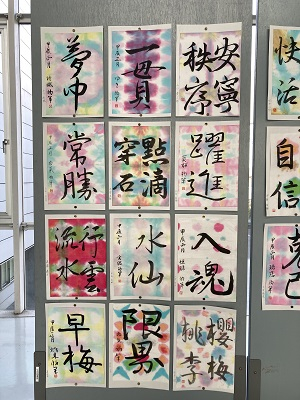 快活
自信
克己
安寧
秩序
一貫
夢中
躍進
點滴
穿石
常勝
入魂
水仙
行雲
流水
櫻梅
桃李
限界
早梅